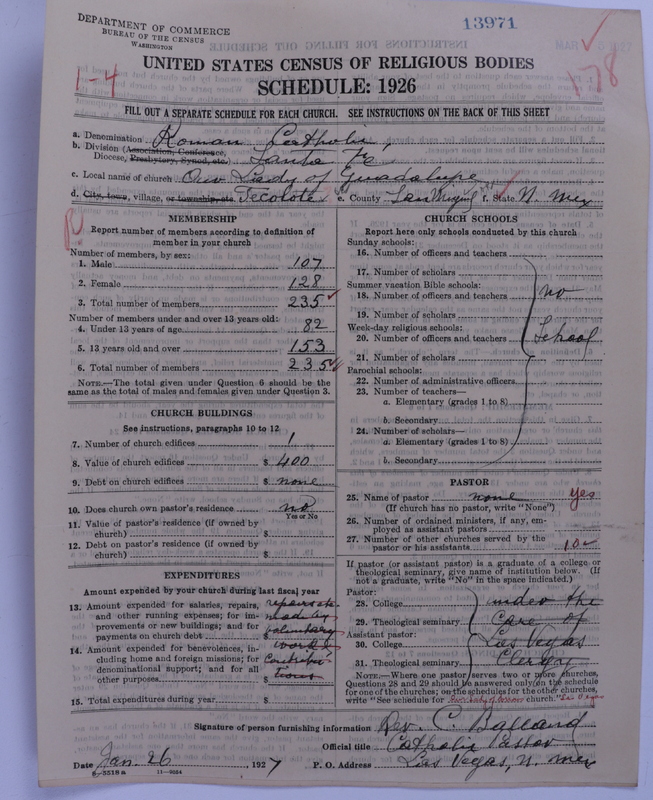 DEPARTMENT OF COMMERCE
BUREAU OF THE CENSUS
WASHINGTON
13971
UNITED STATES CENSUS OF RELIGIOUS BODIES
1-4
SCHEDULE: 1926
178
FILL OUT A SEPARATE SCHEDULE FOR EACH CHURCH. SEE INSTRUCTIONS ON THE BACK OF THIS SHEET
a. Denomination Roman Catholic
b. Division (Association, Conference,
Diocese, Presbytery, Synod, etc.) Santa Fe
c. Local name of church Our Lady of Guadalupe
d. City, town, village, or township, etc. Tecolote e. County San Miguel f. State N. Mex
MEMBERSHIP
Report number of members according to definition of
member in your church
Number of members, by sex:
1. Male 107
2. Female 128
3. Total number of members 235
Number of members under and over 13 years old:
4. Under 13 years of age 82
5. 13 years old and over 153
6. Total number of members 235
NOTE.—The total given under Question 6 should be
same as the total of males and females given under Question 3.
CHURCH BUILDINGS
See instructions, paragraphs 10 to 12
7. Number of church edifices 1
8. Value of church edifices $ 400
9. Debt on church edifices $ none
10. Does church own pastor's residence? no
Yes or No
11. Value of pastor's residence (if owned by
church) $
12. Debt on pastor's residence (if owned by
church) $
EXPENDITURES
Amount expended by your church during last fiscal year
13. Amount expended for salaries, repairs, repairs etc
and other running expenses; for im- made by
provements or new buildings; and for
payments on church debt $ voluntary
14. Amount expended for benevolences, in- work &
cluding home and foreign missions; for contribu
denominational support; and for all
other purposes $ tions
15. Total expenditures during year $
CHURCH SCHOOLS
Report here only schools conducted by this church
Sunday schools:
16. Number of officers and teachers
17. Number of scholars
Summer vacation Bible schools:
18. Number of officers and teachers no
19. Number of scholars
Week-day religious schools:
20. Number of officers and teachers School
21. Number of scholars
Parochial schools:
22. Number of administrative officers
23. Number of teachers—
a. Elementary (grades 1 to 8)
b. Secondary
24. Number of scholars—
a. Elementary (grades 1 to 8)
b. Secondary
PASTOR
25. Name of pastor none yes
(If church has no pastor, write "None")
26. Number of ordained ministers, if any, em-
ployed as assistant pastors
27. Number of other churches served by the
pastor or his assistants
If pastor (or assistant pastor) is a graduate of a college or
theological seminary, give name of institution below. (If
not a graduate, write "No" in the space indicated.)
Pastor:
28. College under the
29. Theological seminary Care of
Assistant pastor:
30. College Las Vegas
31. Theological seminary Clergy
NOTE.—Where one pastor serves two or more churches,
Questions 28 and 29 should be answered only on the schedule
for one of the churches; on the schedules for the other churches,
write "See schedule for church." Las Vegas
Signature of person furnishing information Rev. C. Balland
Official title Catholic Pastor
Date Jan. 26, 1927 P. O. Address Las Vegas, N. Mex
8-3518a 11-9024